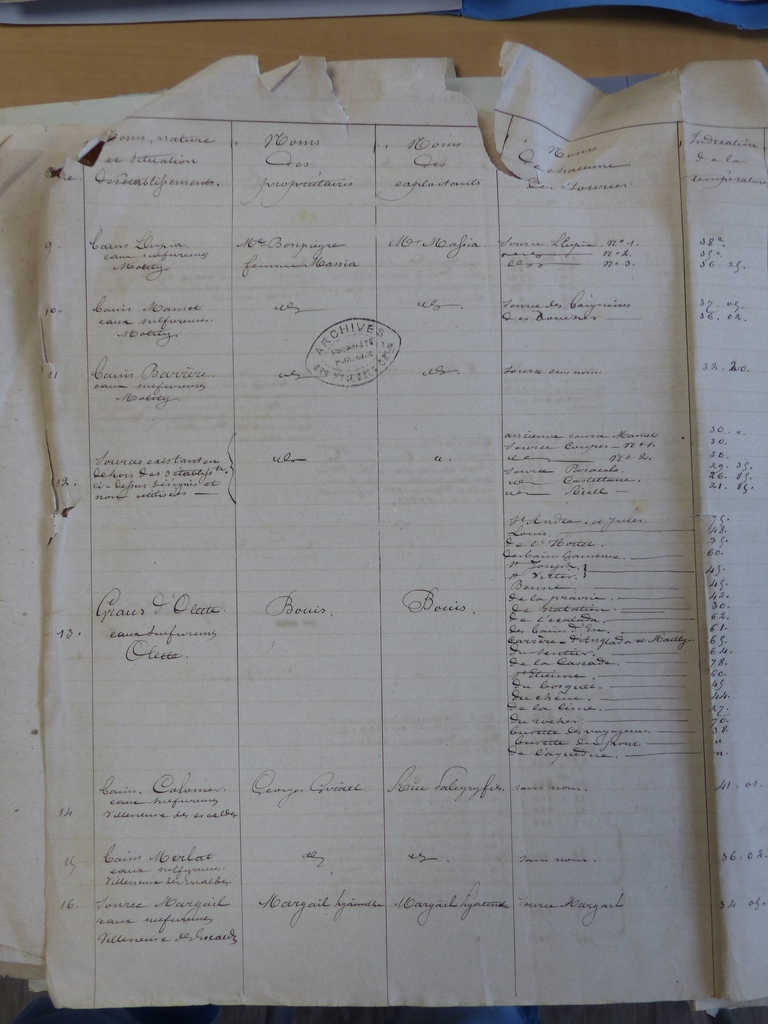 Noms, nature
et situation
des établissements.
Noms
des
propriétaires
Noms
des
exploitants
Noms
de chacune
des sources
Indication
de la
température
9.
Bains Llupia
eaux sulfureuses
Molitg
Me Bonpieyre
femme Massia
Mr Massia
Source Llupia. No 1.
No 2.
No 3.
38°
35.
36.25.
10.
Bains Mamet
eaux sulfureuses
Molitg
Source des Baignoires
des Douches
37.05.
36.02.
ARCHIVES
PROPRIÉTÉ
PUBLIQUE
11
Bains Barrère
eaux sulfureuses
Molitg
Source sans nom.
32.20.
12.
Sources existant en
dehors des 3 établissts
ci-dessus désignés et
non utilisées
ancienne source Mamet
Source Coupes - No 1.
No 2.
Source Paracolo.
Castellane.
Riell
30.
30.
30.
29.35.
26.85.
21.85.
13.
Graus d'Olette
eaux sulfureuses
Olette.
Bouis.
Bouis.
St André et Jules.
Louis.
de l'Hortet
des bains
St Joseph
St Victor.
Bonne
de la prairie.
de Natation.
de l'escalada.
des bains d'En.
Carrère - d'Anglada et Mailly.
du Sentier.
de la Cascade.
St Etienne.
du bosquet.
du chêne.
de la cime.
du rocher
buvette des voyageurs.
buvette du pont.
de l'aqueduc.
75.
48.
35.
60.
45.
45.
42.
30.
62.
61.
65.
64.
78.
60.
45
44.
27.
70.
38.
14
Bains Colomer
eaux sulfureuses
Villeneuve des escaldes
Georges Girvall
sans nom.
41.01.
15
Bains Merlat
eaux sulfureuses
Villeneuve des Escaldes
sans nom.
36.02.
16.
Source Margail
eaux sulfureuses
Villeneuve des Escaldes
Margail hyacinthe
Margail hyacinthe
Source Margail
34.05.